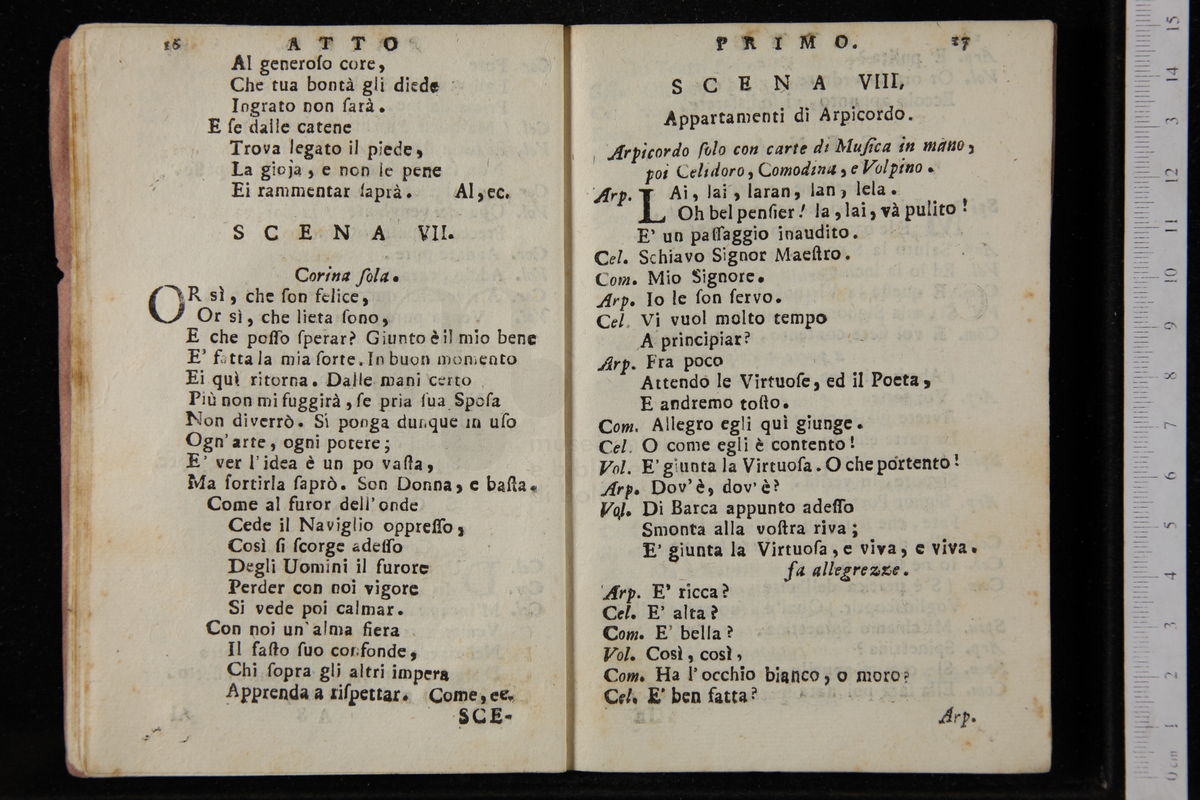 16 ATTO
Al generoſo core,
Che tua bontà gli diede
Ingrato non ſarà.
E ſe dalle catene
Trova legato il piede,
La gioja, e non le pene
Ei rammentar ſaprà. Al, ec.
SCENA VII.
Corina ſola.
OR sì, che ſon felice,
Or sì, che lieta ſono,
E che poſſo ſperar? Giunto è il mio bene
E' fatta la mia ſorte. In buon momento
Ei quì ritorna. Dalle mani certo
Più non mi fuggirà, ſe pria ſua Spoſa
Non diverrò. Si ponga dunque in uſo
Ogn'arte, ogni potere;
E' ver l'idea è un po vaſta,
Ma ſortirla ſaprò. Son Donna, e baſta.
Come al furor dell'onde
Cede il Naviglio oppreſſo,
Così ſi ſcorge adeſſo
Degli Uomini il furore
Perder con noi vigore
Si vede poi calmar.
Con noi un'alma fiera
Il faſto ſuo confonde,
Chi ſopra gli altri impera
Apprenda a riſpettar. Come, ec.
SCE-
PRIMO. 17
SCENA VIII.
Appartamenti di Arpicordo.
Arpicordo ſolo con carte di Muſica in mano,
poi Celidoro, Comodina, e Volpino.
Arp. LAi, lai, laran, lan, lela.
Oh bel penſier! la, lai, và pulito!
E' un paſſaggio inaudito.
Cel. Schiavo Signor Maeſtro.
Com. Mio Signore.
Arp. Io le ſon ſervo.
Cel. Vi vuol molto tempo
A principiar?
Arp. Fra poco
Attendo le Virtuoſe, ed il Poeta,
E andremo toſto.
Com. Allegro egli quì giunge.
Cel. O come egli è contento!
Vol. E' giunta la Virtuoſa. O che portento!
Arp. Dov'è, dov'è?
Vol. Di Barca appunto adeſſo
Smonta alla voſtra riva;
E' giunta la Virtuoſa, e viva, e viva.
fa allegrezze.
Arp. E' ricca?
Cel. E' alta?
Com. E' bella?
Vol. Così, così,
Com. Ha l'occhio bianco, o moro?
Cel. E' ben fatta?
Arp.